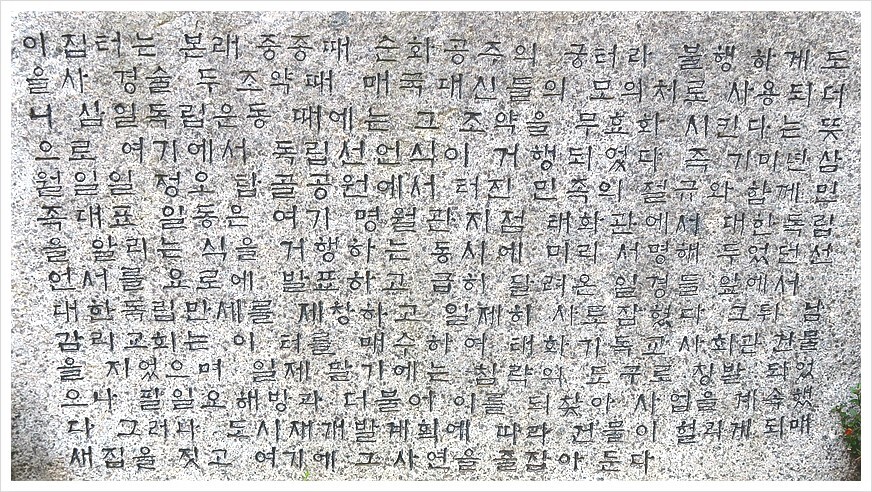 이 집터는 본래 중종때 순화공주의 궁터라 불행하게도
을사 경술 두 조약때 매국대신들의 모의처로 사용되더
니 삼일독립운동 때에는 그 조약을 무효화 시킨다는 뜻
으로 여기에서 독립선언식이 거행되었다 즉 기미년 삼
월일일 정오 탑골공원에서 터진 민족의 절규와 함께 민
족대표 일동은 여기 명월관 지점 태화관에서 대한독립
을 알리는 식을 거행하는 동시에 미리 서명해 두었던 선
언서를 요로에 발표하고 급히 달려온 일경들 앞에서
대한독립만세를 제창하고 일제히 사로잡혔다 그뒤 남
감리교회는 이 터를 매수하여 태화기독교사회관 건물
을 지었으며 일제 말기에는 침략의 도구로 징발 되었
으나 팔일오 해방과 더불어 이를 되찾아 사업을 계속했
다 그러나 도시재개발계획에 따라 건물이 헐리게 되매
새집을 짓고 여기에 그 사연을 줄잡아 둔다